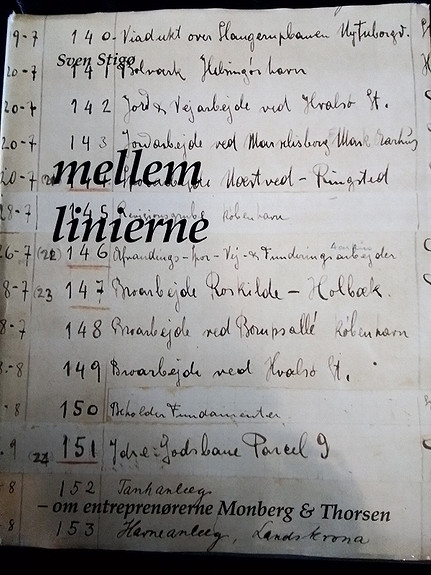 9-7 140. Viadukt over Slangerupbanen Nytuborgv.
Sven Stigø
20-7 141 Bolværk Helsingørs havn
20-7 142 Jord & Vejarbejde ved Hvalsø St.
20-7 143 Jordarbejde ved Marselisborg Mark Aarhus
mellem
20-7 Næstved - Ringsted
28-7 145 København
linierne
26-7 (22) 146 Afvandings- Vej- & Funderingsarbejder
8-7 (23 147 Broarbejde Roskilde - Holbæk.
8-7 148 Broarbejde ved København
8-8 149 Broarbejde ved Hvalsø St.
8 150 Beholder Fundamenter
9 24 151 Ydre-Godsbane Parcel 9
8 152 Tankanlæg
– om entreprenørerne Monberg & Thorsen
8 153 Havneanlæg, Landskrona